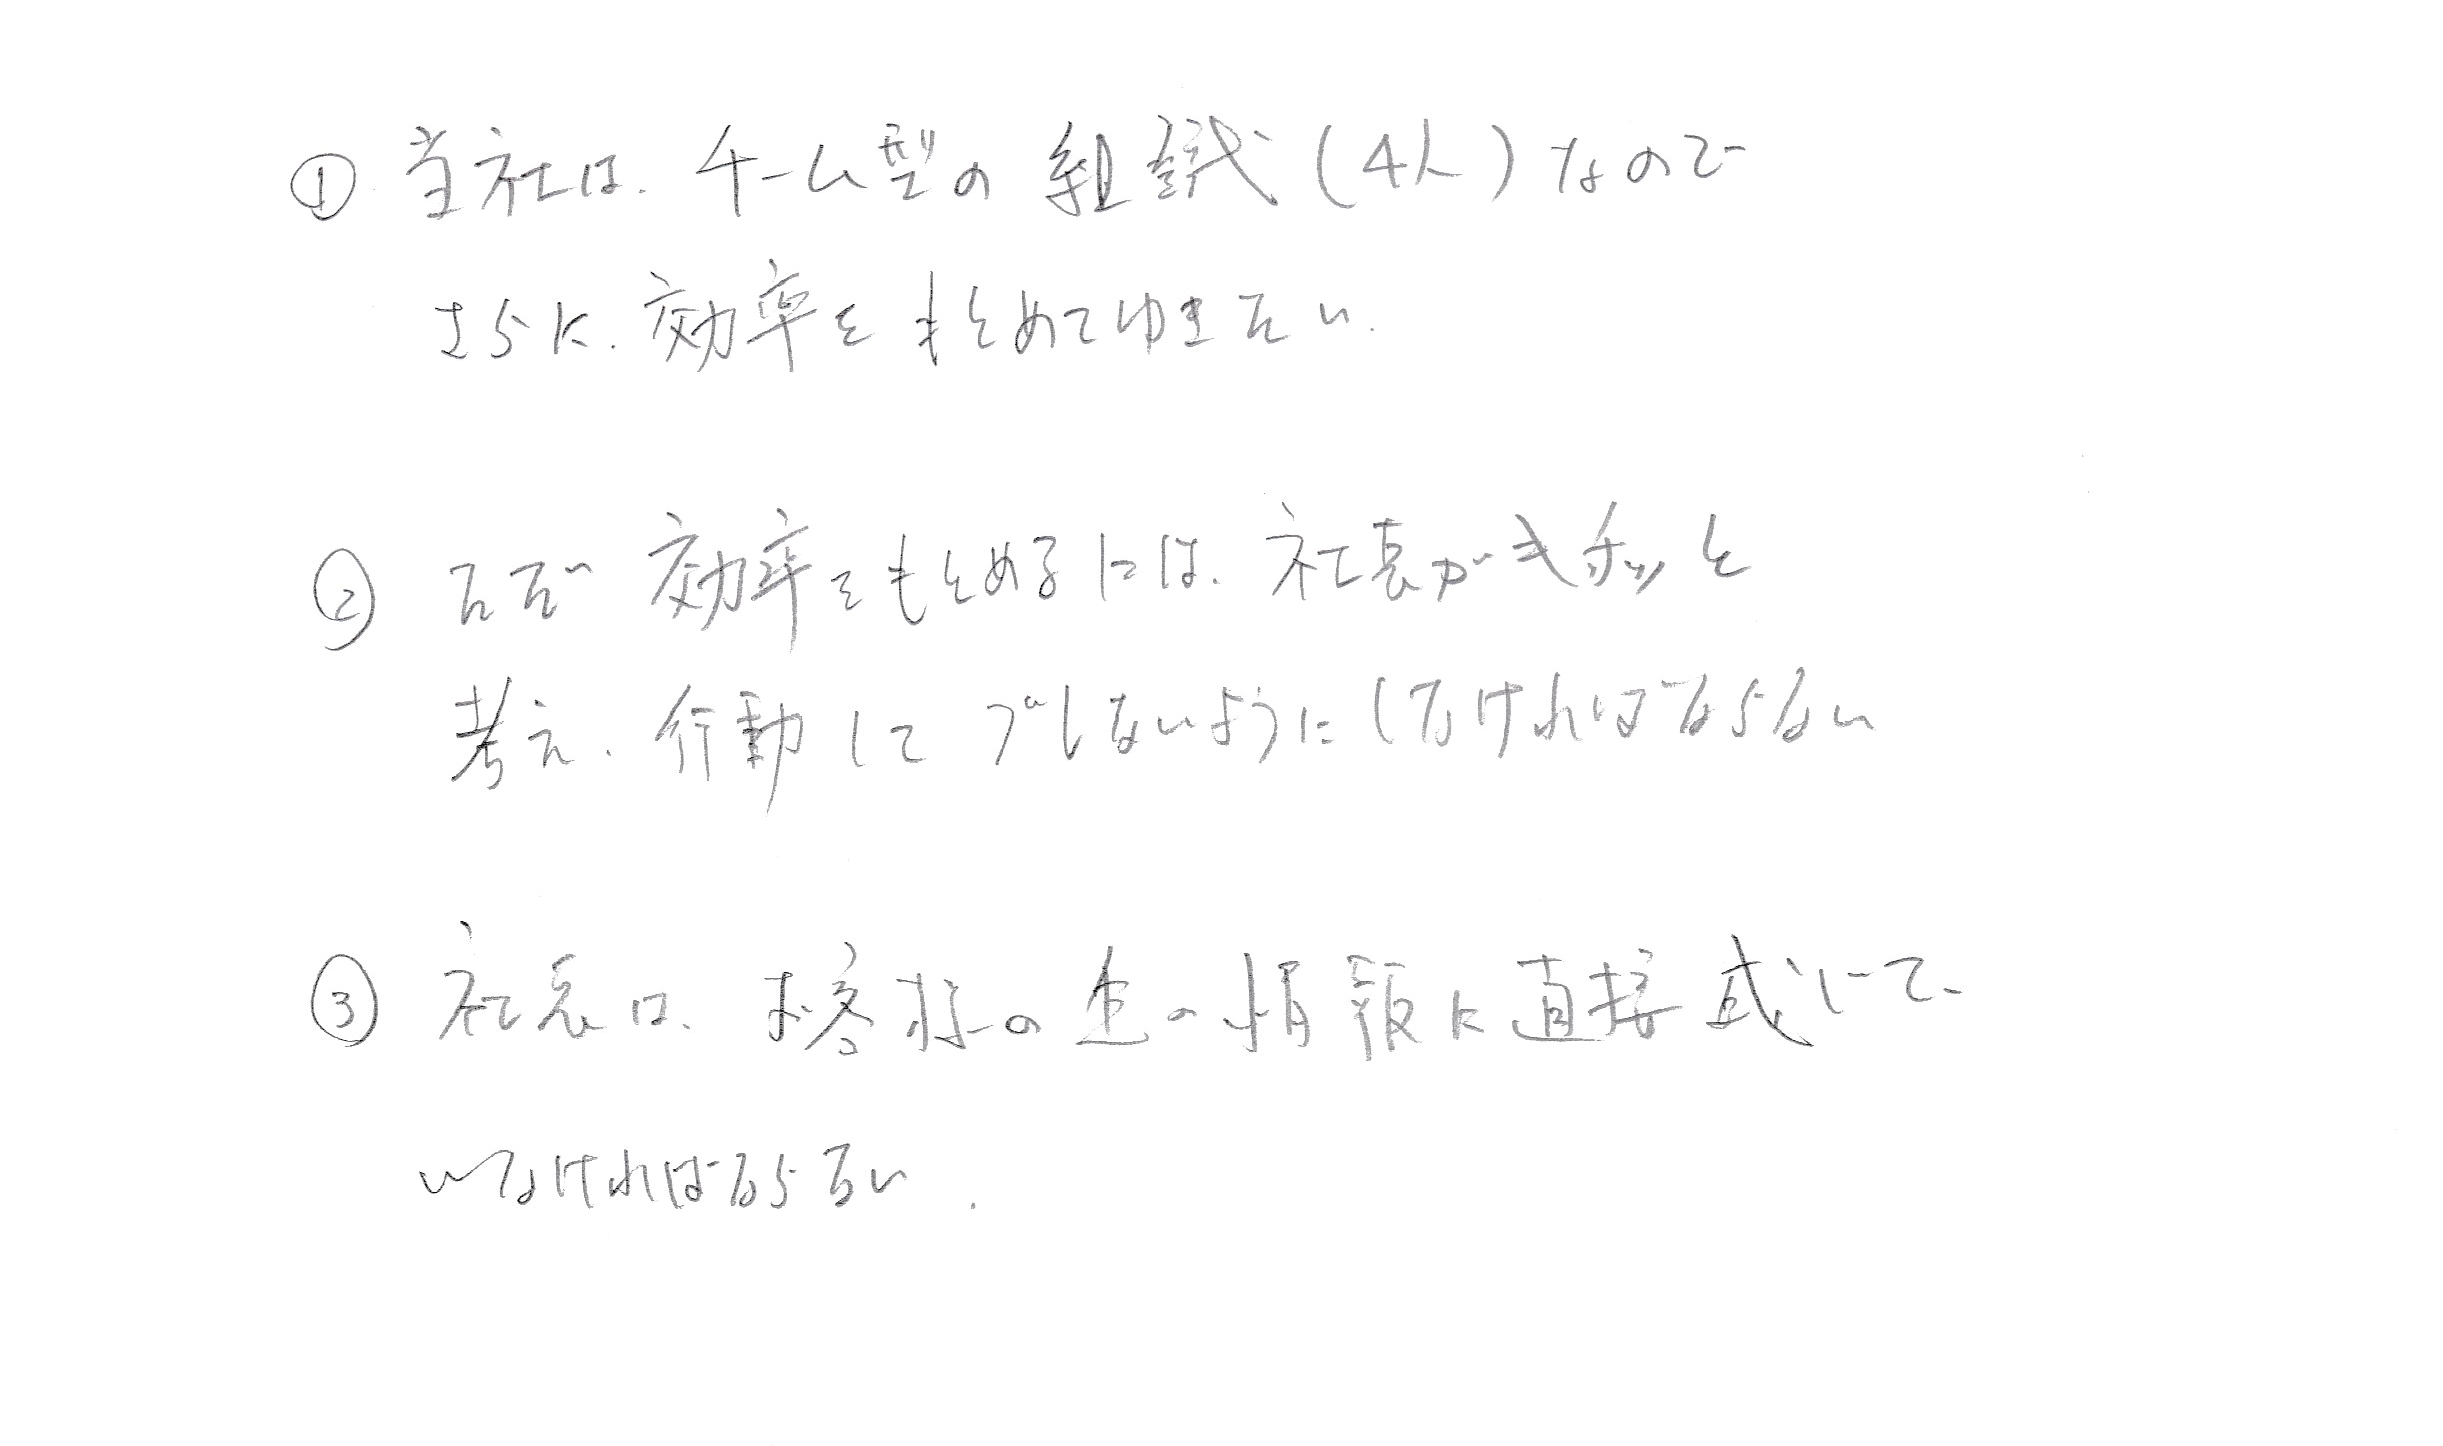 ① 当社は、チーム型の組織(4人)なので
さらに、効率をもとめてゆきたい.
② ただ効率をもとめるには、社長がキチッと
考え、行動してブレないようにしなければならない
③ 社長は、お客様の生の情報に直接
いなければならない.